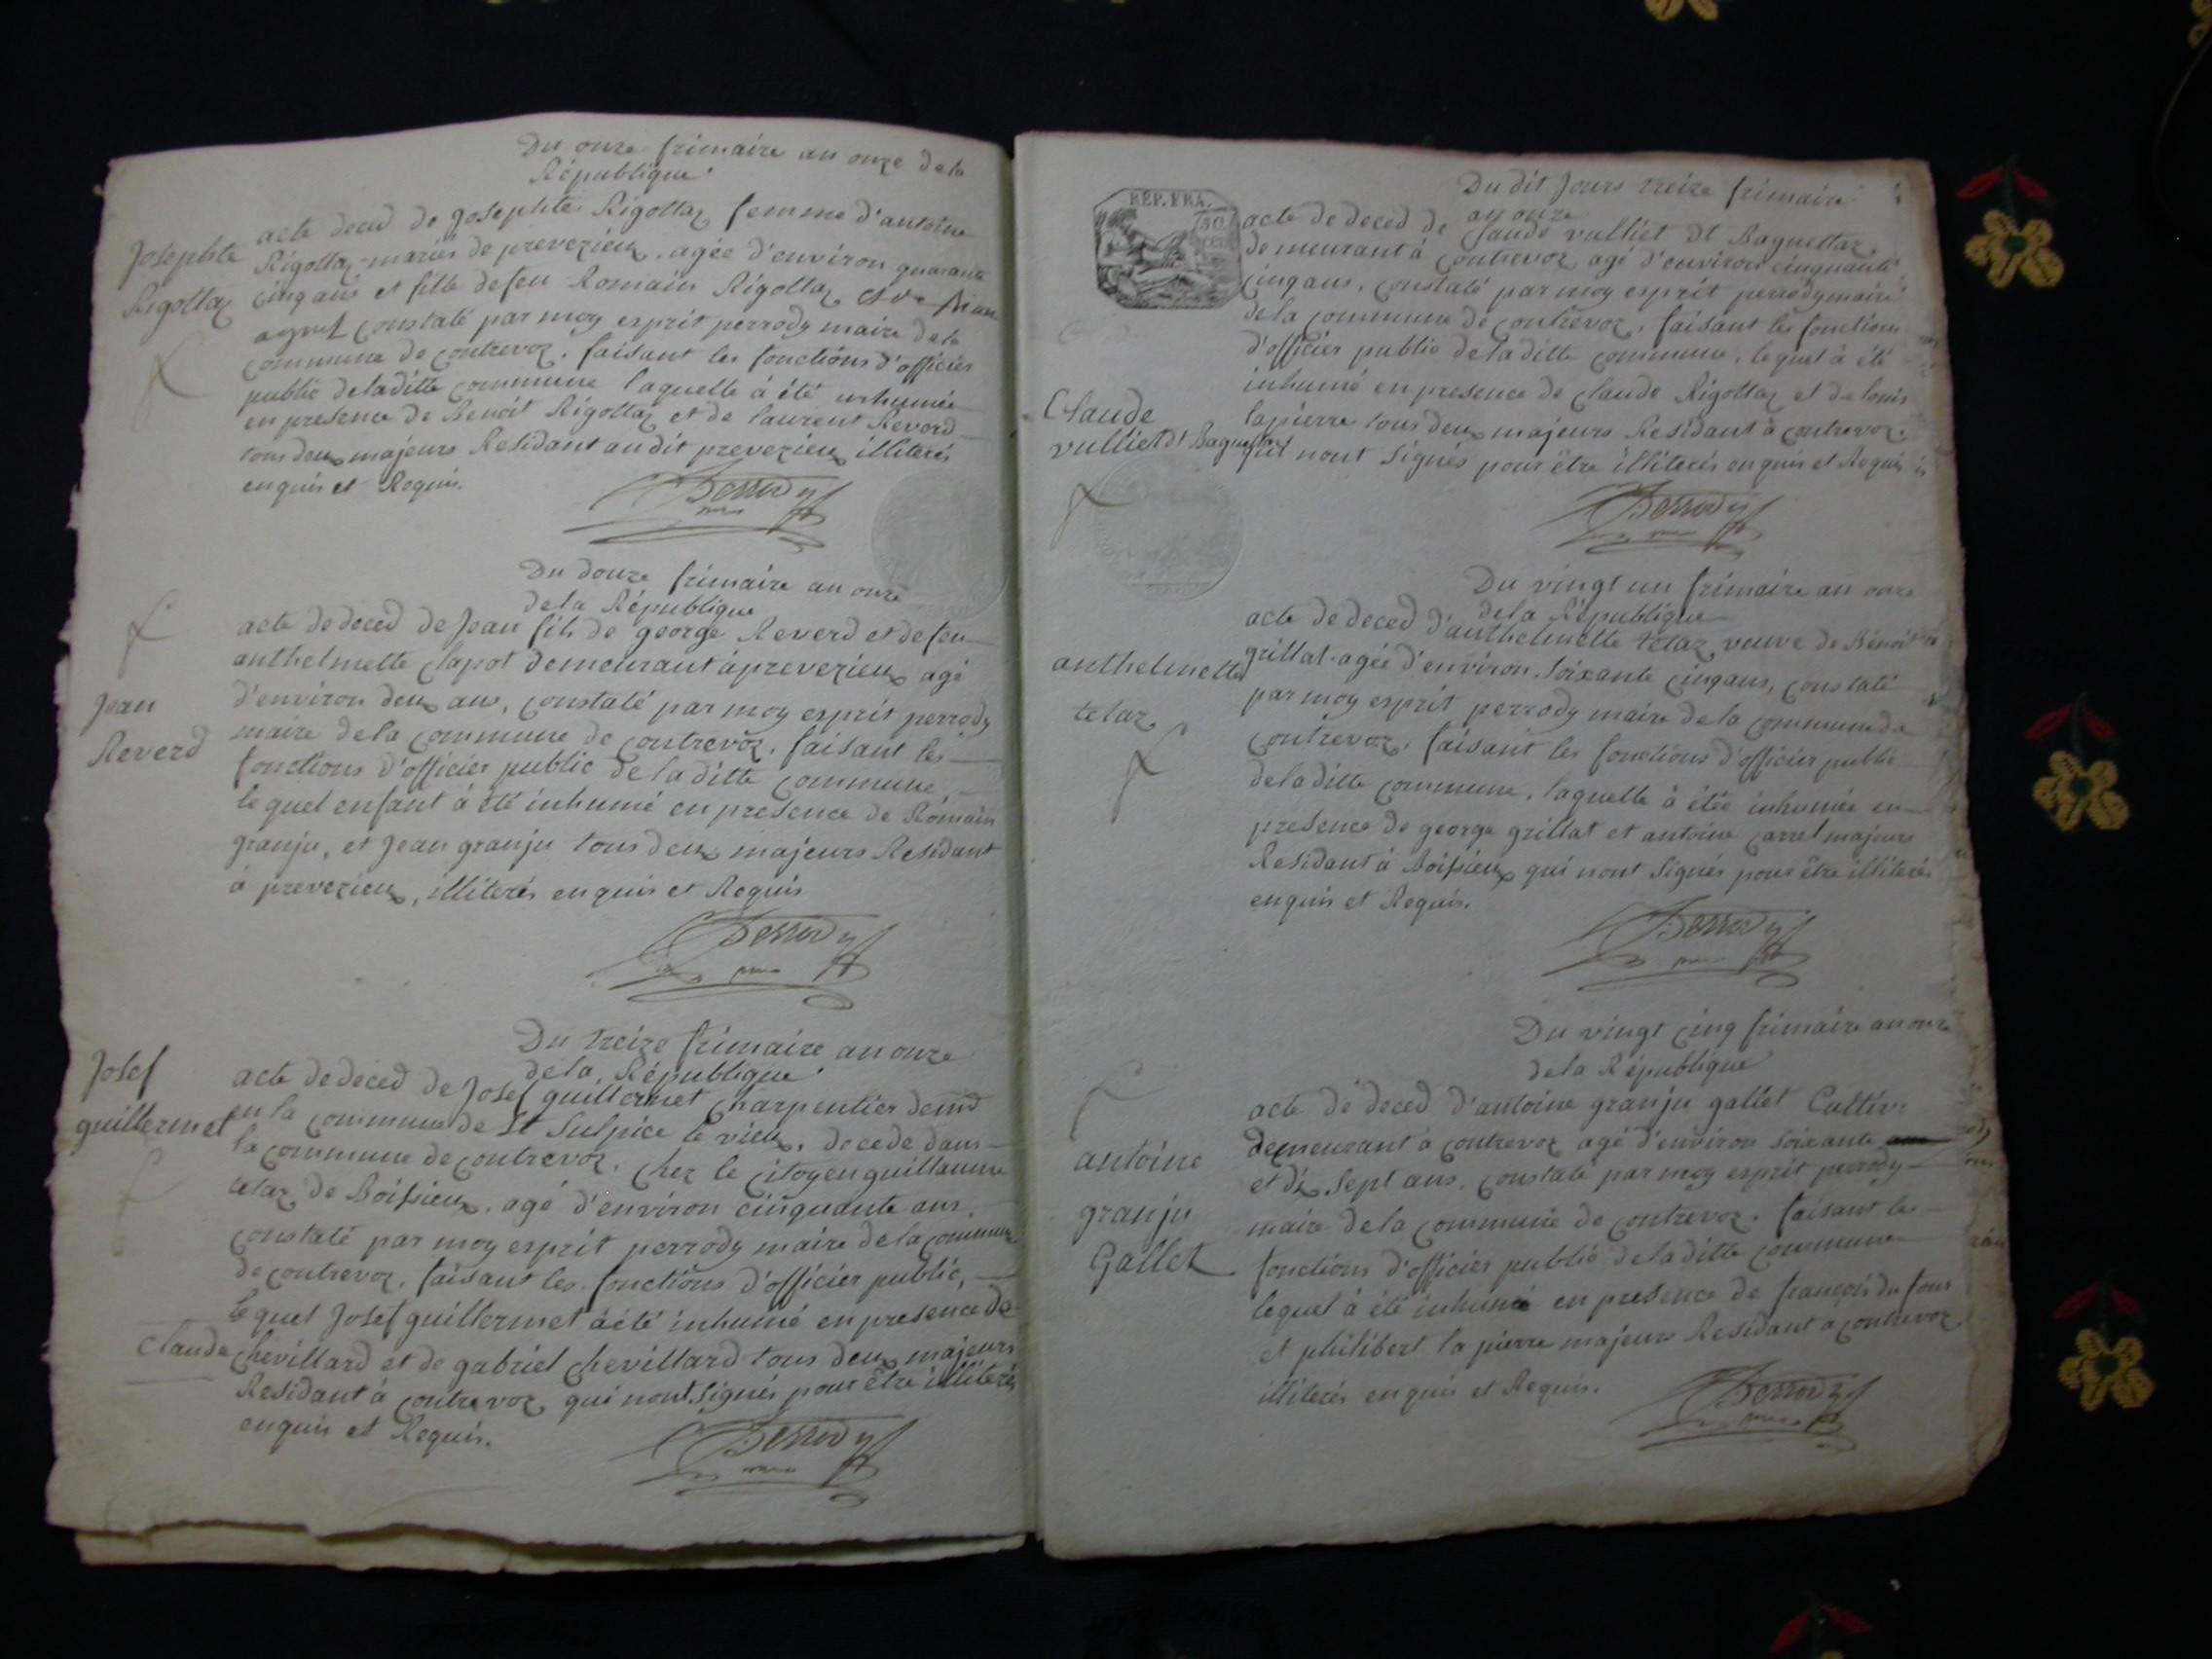 Du onze frimaire an onze de la
République
Josephte
Rigottaz
acte deced de Josephte Rigottaz femme d'antoine
Rigottaz mariés de preverieux, agée d'environ quarante
cinq ans et fille de feu Romain Rigottaz et
constaté par moy esprit perrody maire de la
commune de contrevoz, faisant les fonctions d'officier
public de laditte commune laquelle à été inhumée
en presence de Benoit Rigottaz et de laurent Reverd
tous deux majeurs Residant audit preverieux illiterés
enquis et Requis.
Perrody
maire
Du douze frimaire an onze
de la République
Jean
Reverd
acte de deced de Jean fils de george Reverd et de feu
anthelmette Clapot demeurant à preverieux agé
d'environ deux ans, constaté par moy esprit perrody
maire de la commune de contrevoz, faisant les
fonctions d'officier public de laditte commune,
lequel enfant à été inhumé en presence de Romain
granju, et Jean granju tous deux majeurs Residant
à preverieux, illiterés enquis et Requis
Perrody
maire
Du treize frimaire an onze
de la République
Josef
guillermet
acte de deced de Josef guillermet charpentier
en la commune de St Sulpice le vieux, decede dans
la commune de contrevoz, chez le citoyen guillaume
telaz de Boissieux, agé d'environ cinquante ans,
constaté par moy esprit perrody maire de la commune
de contrevoz, faisant les fonctions d'officier public,
lequel Josef guillermet à été inhumé en presence de
Claude chevillard et de gabriel chevillard tous deux majeurs
Residant à contrevoz qui nont Signés pour être illiterés
enquis et Requis.
Perrody
maire
REP. FRA.
50
CEN
Du dit Jours treize frimaire
an onze
Claude
vulliet dt Baguettaz
acte de deced de Claude vulliet dt Baguettaz
demeurant à contrevoz agé d'environ cinquante
cinq ans, constaté par moy esprit perrody maire
de la commune de contrevoz, faisant les fonctions
d'officier public de laditte commune, lequel à été
inhumé en presence de claude Rigottaz et de louis
lapierre tous deux majeurs Residant à contrevoz
qui nont Signés pour être illiterés enquis et Requis
Perrody
maire
Du vingt un frimaire an onze
de la République
anthelmette
telaz
acte de deced d'anthelmette telaz veuve de Benoit
grillat agée d'environ Soixante cinq ans, constaté
par moy esprit perrody maire de la commune de
contrevoz, faisant les fonctions d'officier public
de laditte commune, laquelle à étée inhumée en
presence de george grillat et antoine carrel majeurs
Residant à Boissieux qui nont Signés pour être illiterés
enquis et Requis.
Perrody
maire
Du vingt cinq frimaire an onze
de la République
antoine
granju
Gallet
acte de deced d'antoine granju gallet Cultiv:
demeurant à contrevoz agé d'environ soixante
et dix Sept ans, constaté par moy esprit perrody
maire de la commune de contrevoz, faisant les
fonctions d'officier public de laditte commune
lequel à été inhumé en presence de françois du four
et philibert la pierre majeurs Residant à contrevoz
illiterés enquis et Requis.
Perrody
maire